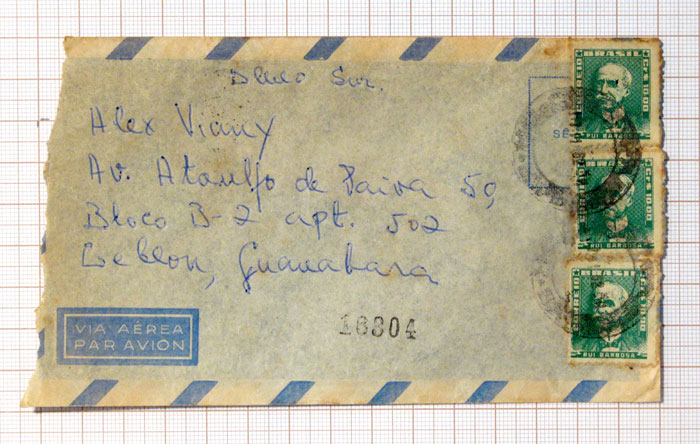 Sur.
Alex Viany
Av. Ataulfo de Paiva 50,
Bloco B-2 apt. 502
Leblon, Guanabara
VIA AÉREA
PAR AVION
16804
CORREIO BRASIL CR$ 10,00
RUI BARBOSA
CORREIO BRASIL CR$ 10,00
RUI BARBOSA
CORREIO BRASIL CR$ 10,00
RUI BARBOSA